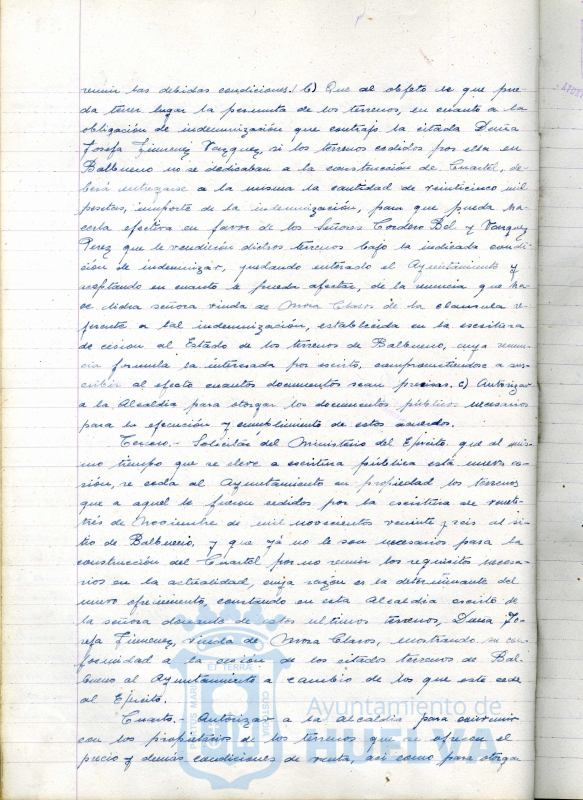 reunir las debidas condiciones.) b) Que al objeto de que pue-
da tener lugar la permuta de los terrenos, en cuanto a la
obligación de indemnización que contrajo la citada Doña
Josefa Jimenez Vazquez, si los terrenos cedidos por ella en
Balbueno no se dedicaban a la construcción de Cuartel, de-
berá entregarse a la misma la cantidad de veinticinco mil
pesetas, importe de la indemnización, para que pueda ha-
cerla efectiva en favor de los Señores Cordero Bel y Vazquez
Perez que le vendieron dichos terrenos bajo la indicada condi-
ción de indemnizar, quedando enterado el Ayuntamiento y
aceptando en cuanto le pueda afectar, de la renuncia que ha-
ce dicha señora viuda de Mora Claros de la clausula re-
ferente a tal indemnización, establecida en la escritura
de cesión al Estado de los terrenos de Balbueno, cuya renun-
cia formula la interesada por escrito, comprometiendose a sus-
cribir al efecto cuantos documentos sean precisos. c) Autorizar
a la Alcaldia para otorgar los documentos publicos necesarios
para la ejecución y cumplimiento de estos acuerdos.
Tercero.- Solicitar del Ministerio del Ejército, que al mis-
mo tiempo que se eleve a escritura pública esta nueva ce-
sión, se ceda al Ayuntamiento en propiedad los terrenos
que a aquel le fueron cedidos por la escritura de veinti-
trés de Noviembre de mil novecientos veinte y seis al si-
tio de Balbueno, y que yá no le son necesarios para la
construcción del Cuartel por no reunir los requisitos necesa-
rios en la actualidad, cuya razón es la determinante del
nuevo ofrecimiento, constando en esta Alcaldia escrito de
la señora donante de estos ultimos terrenos, Doña Jo-
sefa Jimenez, viuda de Mora Claros, mostrando su con-
formidad a la cesión de los citados terrenos de Bal-
bueno al Ayuntamiento a cambio de los que este cede
al Ejército.
Cuarto.- Autorizar a la Alcaldia para convenir
con los propietarios de los terrenos que se ofrecen el
precio y demás condiciones de venta, así como para otorgar
Ayuntamiento de
HUELVA